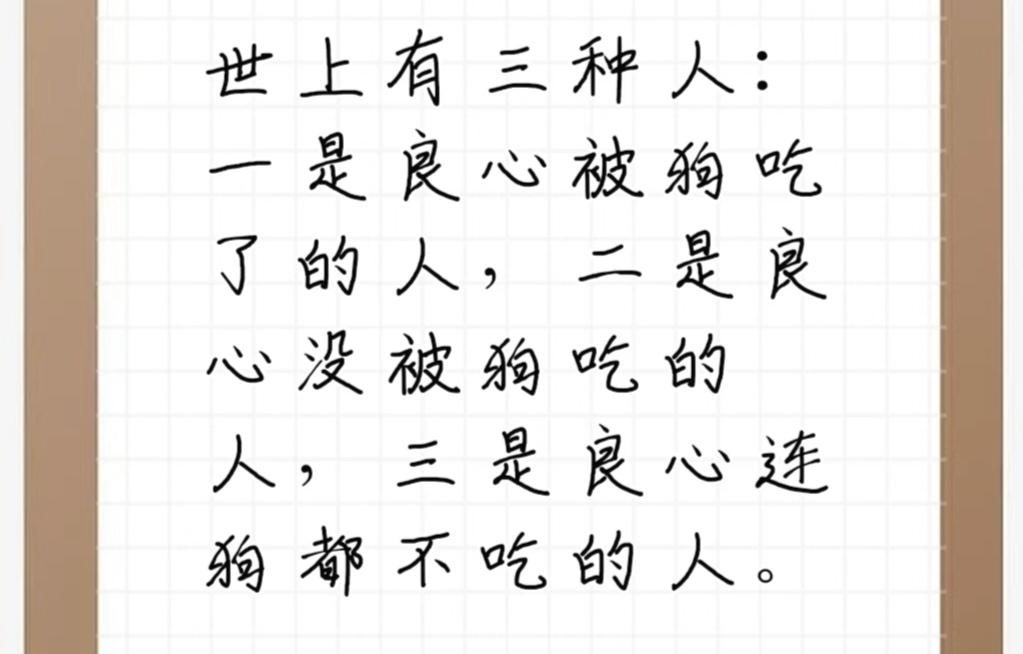 世上有三种人：
一是良心被狗吃
了的人，二是良
心没被狗吃的
人，三是良心连
狗都不吃的人。